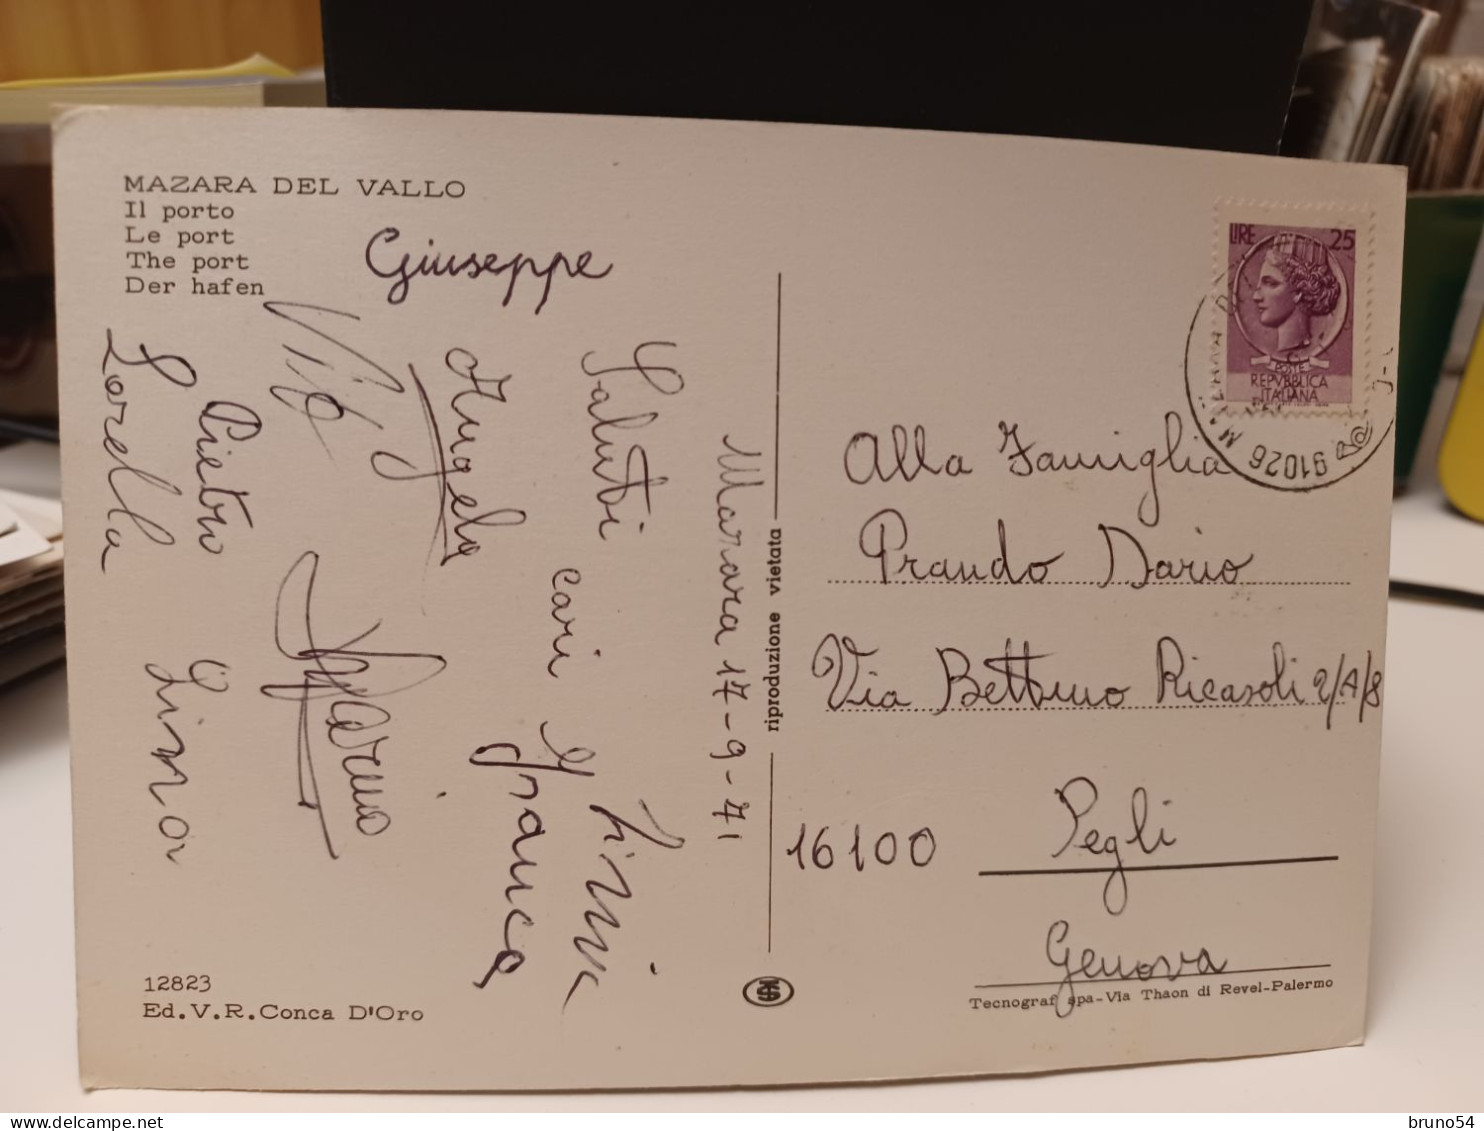 MAZARA DEL VALLO
Il porto
Le port
The port
Der hafen
Giuseppe
Mazara 17-9-71
Saluti cari
Franca
Angelo
Pietro
Lorella
LIRE 25
POSTE
REPVBBLICA
ITALIANA
91026 MA
riproduzione vietata
Alla Famiglia
Prando Dario
Via Bettino Ricasoli 2/A/8
16100 Pegli
Genova
12823
Ed.V.R.Conca D'Oro
Tecnograf spa-Via Thaon di Revel-Palermo
bruno54